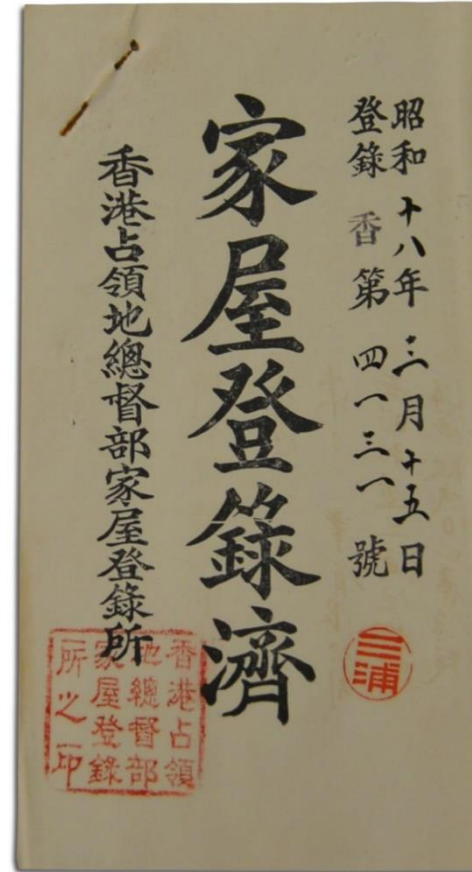 昭和十八年三月十五日
登錄香第四一三一號
三浦
家屋登錄濟
香港占領地總督部家屋登錄所
香港占領
地總督部
家屋登錄
所之印